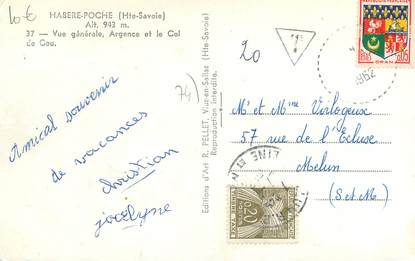 10 €
HABERE-POCHE (Hte-Savoie)
Alt. 943 m.
37 - Vue générale, Argence et le Col
de Cou.
20
74)
Amical souvenir
de vacances
christian
jocelyne
Editions d'Art R. PELLET, Viuz-en-Sallaz (Hte-Savoie)
Reproduction interdite.
REPUBLIQUE FRANÇAISE
0,05
ORAN
1962
Mr et Mme Verlogeux
57 rue de l'Ecluse
Melun
(S.et.M.)
0,20